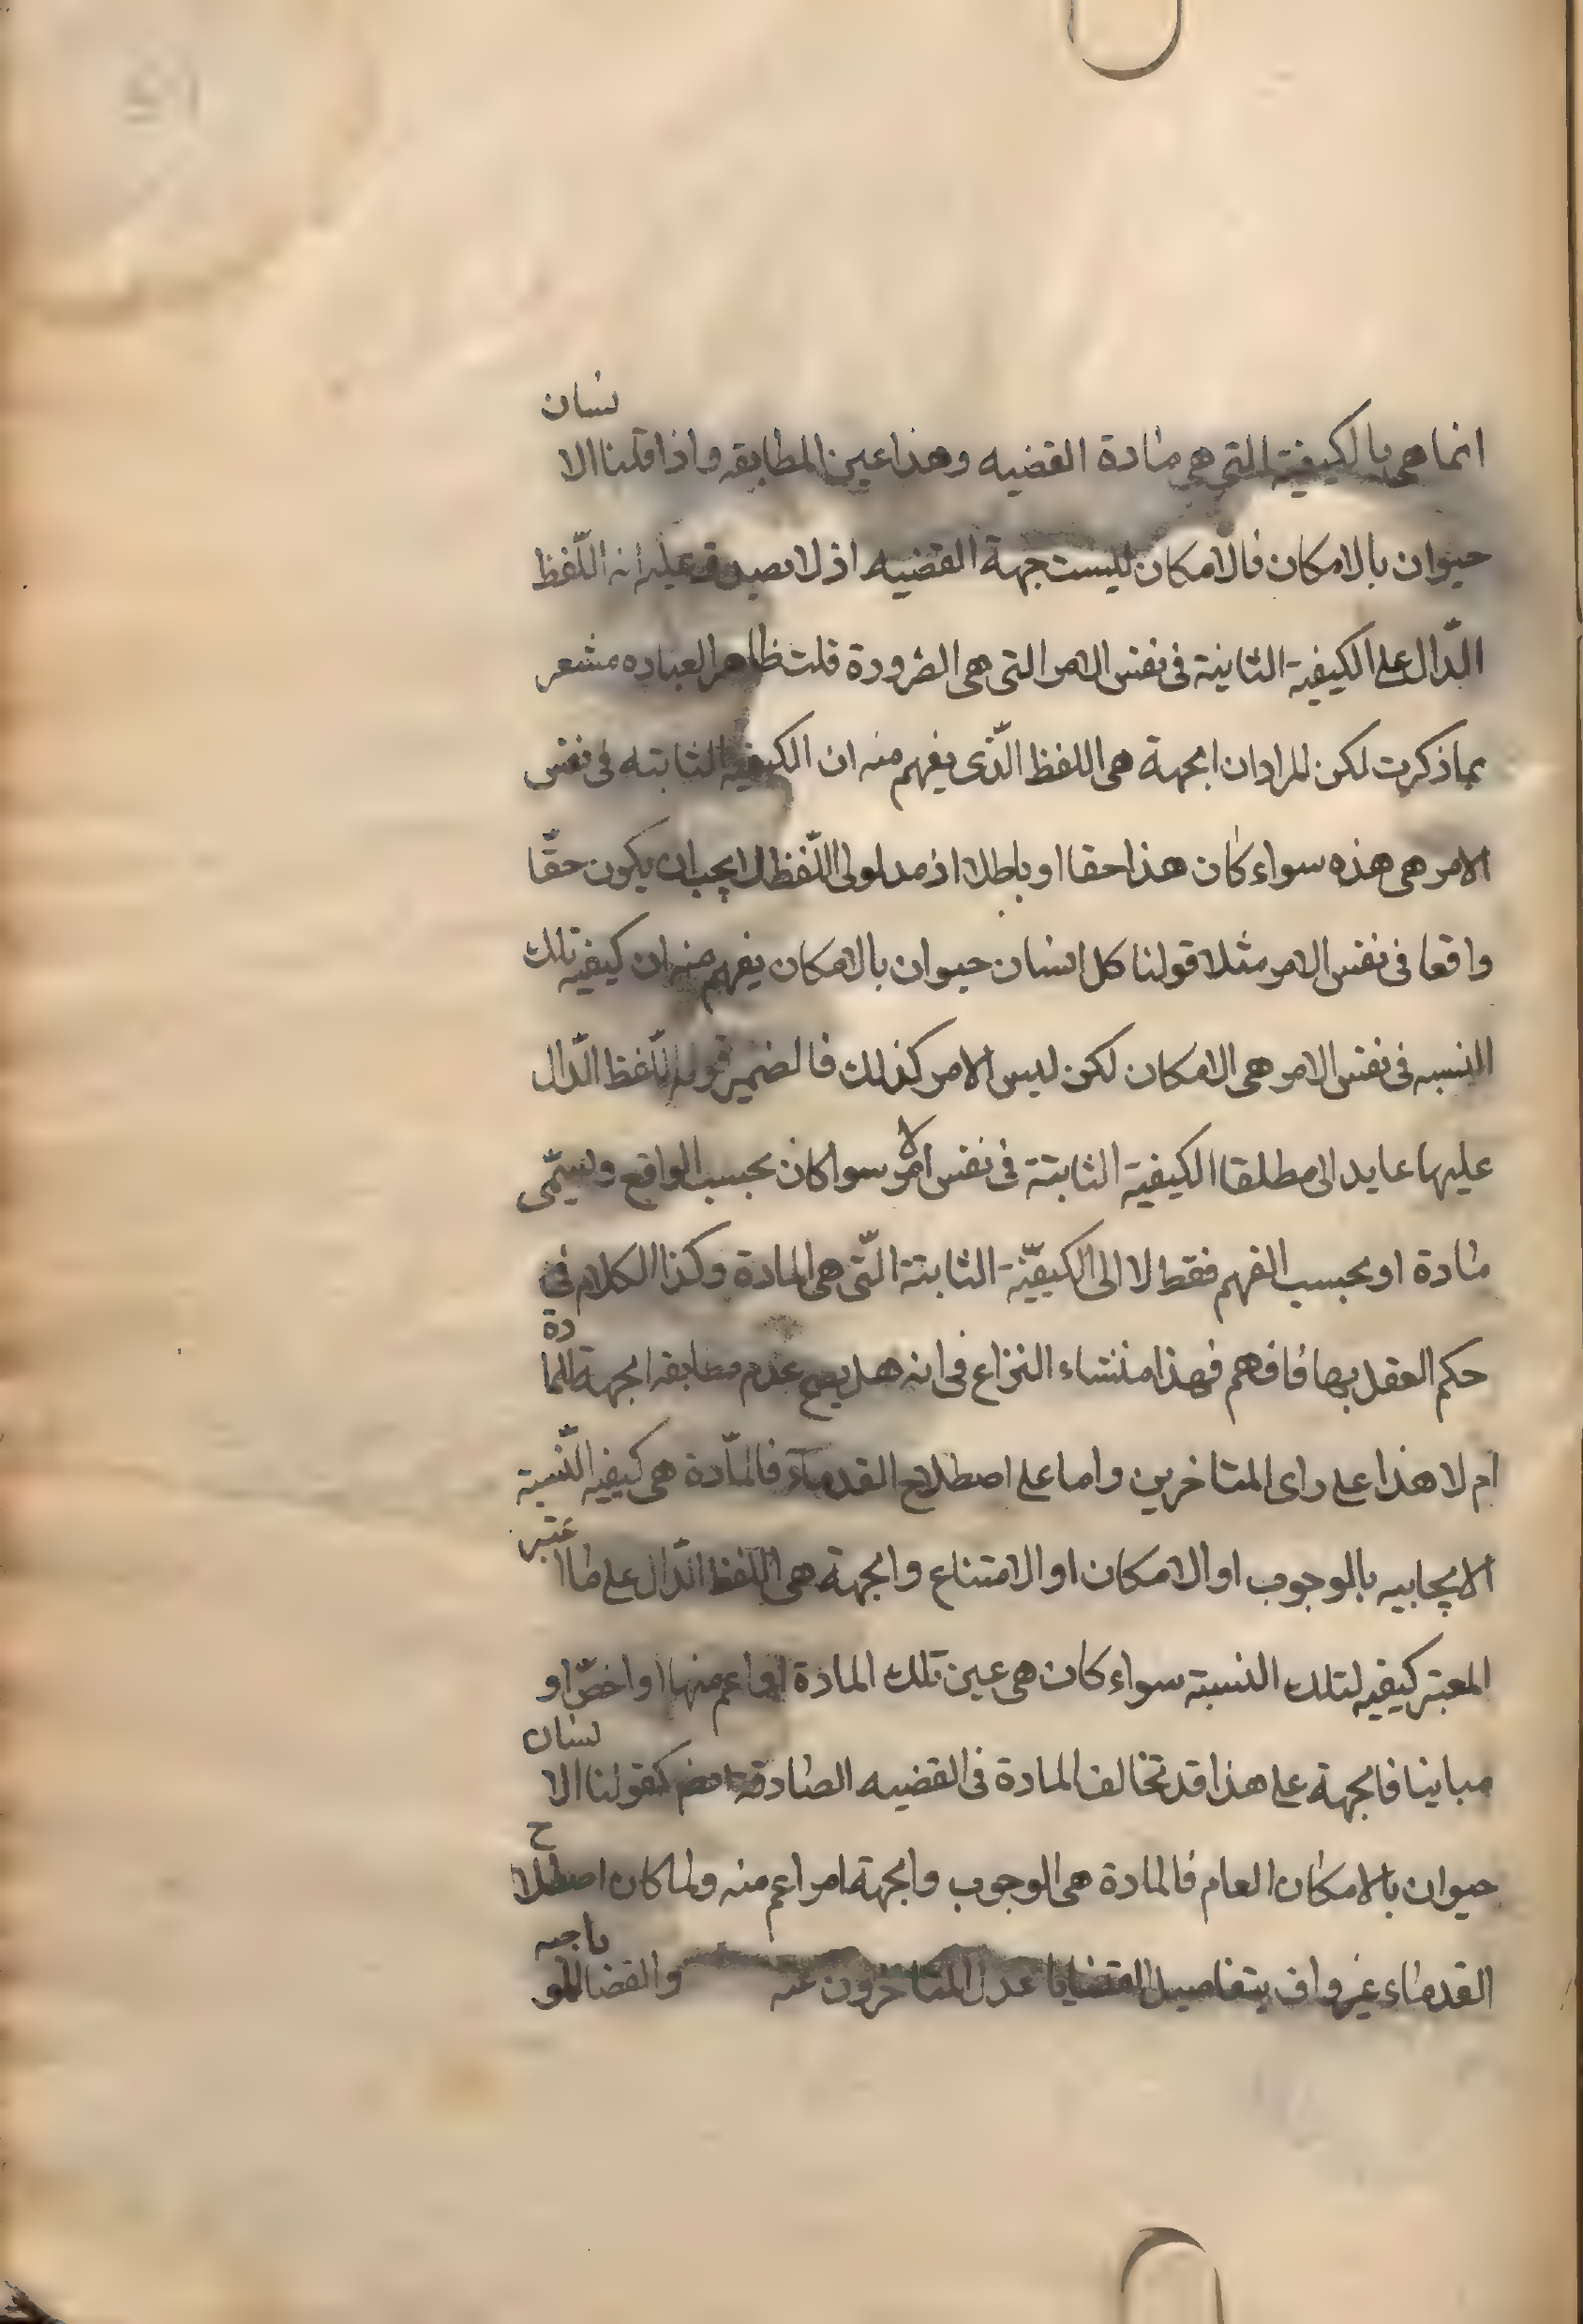 انما هى بالكيفية التى هى مادة القضيه وهذا عين المطابقه واذا قلنا الانسان
حيوان بالامكان فالامكان ليست جهة القضيه اذ لا يصدق عليه انه اللّفظ
الدّال على الكيفية الثابتة فى نفس الامر التى هى الضرورة قلت ظاهر العباره مشعر
بما ذكرت لكن المراد ان الجهة هى اللفظ الّذى يفهم منه ان الكيفية الثابته فى نفس
الامر هى هذه سواء كان هذا حقا او باطلا اذ مدلولى اللّفظ لا يجب ان يكون حقّا
واقعا فى نفس الامر مثلا قولنا كل انسان حيوان بالامكان يفهم منه ان كيفية تلك
النسبه فى نفس الامر هى الامكان لكن ليس الامر كذلك فالضمير قوله اللّفظ الدّال
عليها عايد الى مطلقا الكيفية الثابتة فى نفس الامر سوا كان بحسب الواقع ويسمّى
مادة او بحسب الفهم فقط لا الى الكيفيّة الثابتة الّتى هى المادة وكذا الكلام فى
حكم العقل بها فافهم فهذا منشاء النزاع فى انه هل يصح عدم مطابقه الجهة المادة
ام لا هذا على راى المتاخرين واما على اصطلاح القدماء فالمادّة هى كيفيه النّسبة
الايجابيه بالوجوب او الامكان او الامتناع والجهة هى اللفظ الدّال على ما اعتبر
المعتبر كيفيه لتلك النسبة سواء كان هى عين تلك المادة او اعم منها او اخصّ او
مباينا فالجهة على هذا قد تخالف المادة فى القضيه الصادقة كقولنا الانسان
حيوان بالامكان العام فالمادة هى الوجوب والجهة امر اعم منه ولما كان اصطلاح
القدماء غير واف بتفاصيل القضايا عدل المتاخرون عنه والقضا الموباجيه